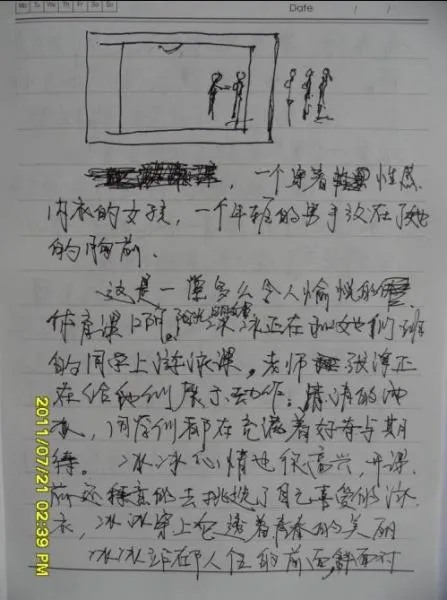 Mo Tu We Th Fr Sa Su
Date / /
，一个穿着性感
内衣的女孩，一个年轻的男手放在了她
的胸前.
这是一堂多么令人愉悦的
体育课啊。冰冰正在和她们班
的同学上游泳课，老师张泽正
在给他们展示动作；清清的泳
，同学们都在充满着好奇与期
待。冰冰心情也很高兴，开课
前还特意的去挑选了自己喜爱的泳
衣，冰冰穿上它透着青春的美丽
冰冰站在 人 的前面，面对
2011/07/21 02:39 PM